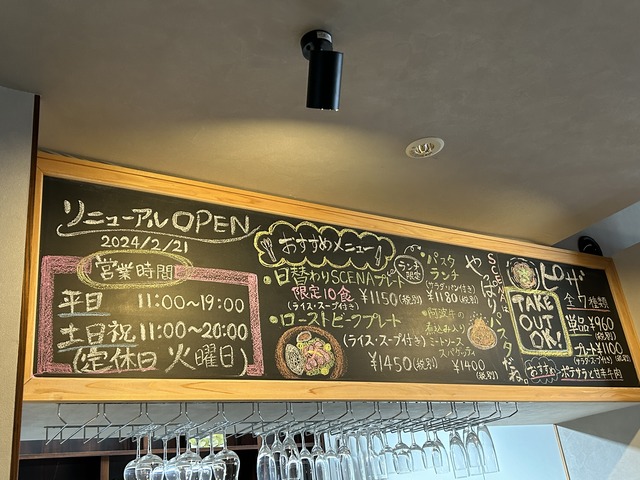 リニューアルOPEN
2024/2/21
営業時間
平日 11:00~19:00
土日祝 11:00~20:00
(定休日 火曜日)
おすすめメニュー
・日替わりSCENAプレート
ランチ限定
限定10食 ¥1150(税別)
(ライス・スープ付き)
・ローストビーフプレート
(ライス・スープ付き)
¥1450(税別)
・パスタランチ
(サラダ・パン付き)
¥1180(税別)
・阿波牛の
煮込み入り
ミートソース
スパゲッティ
¥1400
(税別)
やっぱり
パスタだね。
ピザ
全7種類
TAKE
OUT
OK!
単品¥960
(税別)
プレート¥1100
(サラダ・スープ付き)
(税別)
おすすめ